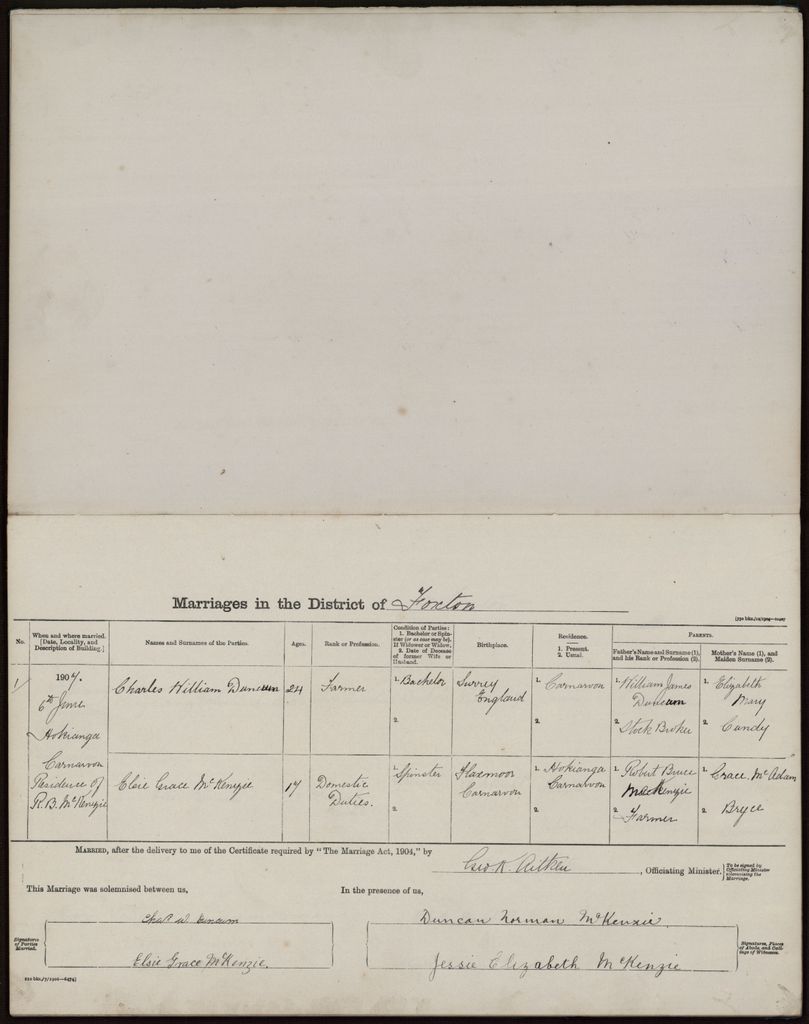 Marriages in the District of Foxton
No.
When and where married.
[Date, Locality, and
Description of Building.]
Names and Surnames of the Parties.
Ages.
Rank or Profession.
Condition of Parties:
1. Bachelor or Spin-
ster (or as case may be).
If Widower or Widow,
2. Date of Decease
of former Wife or
Husband.
Birthplace.
Residence.
1. Present.
2. Usual.
PARENTS.
Father's Name and Surname (1),
and his Rank or Profession (2).
Mother's Name (1), and
Maiden Surname (2).
1/
1907.
6th June
Hokianga
Carnarvon
Residence of
R. B. McKenzie
Charles William Duncum
24
Farmer
1. Bachelor
2.
Surrey
England
1. Carnarvon
2.
1. William James
Duncum
2. Stock Broker
1. Elizabeth
Mary
2. Candy
Elsie Grace McKenzie
17
Domestic
Duties.
1. Spinster
2.
Flaxmoor
Carnarvon
1. Hokianga
Carnarvon
2.
1. Robert Bruce
MacKenzie
2. Farmer
1. Grace McAdam
2. Bryce
MARRIED, after the delivery to me of the Certificate required by "The Marriage Act, 1904," by
Geo. K. Aitken, Officiating Minister.
To be signed by
Officiating Minister
solemnising the
Marriage.
This Marriage was solemnised between us,
In the presence of us,
Signatures
of Parties
Married.
Chas W. Duncum
Elsie Grace McKenzie.
Duncan Norman McKenzie.
Jessie Elizabeth McKenzie
Signatures, Places
of Abode, and Call-
ings of Witnesses.